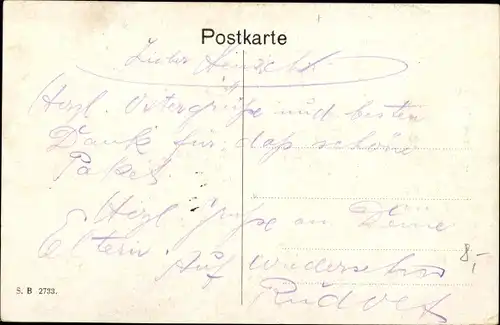 Postkarte
Lieber
Herzl. Ostergrüße und besten
Dank für das schöne
Paket.
Herzl. Grüße an Deine
Eltern. Auf Wiedersehen
Rudolf
8,-
S. B 2733.